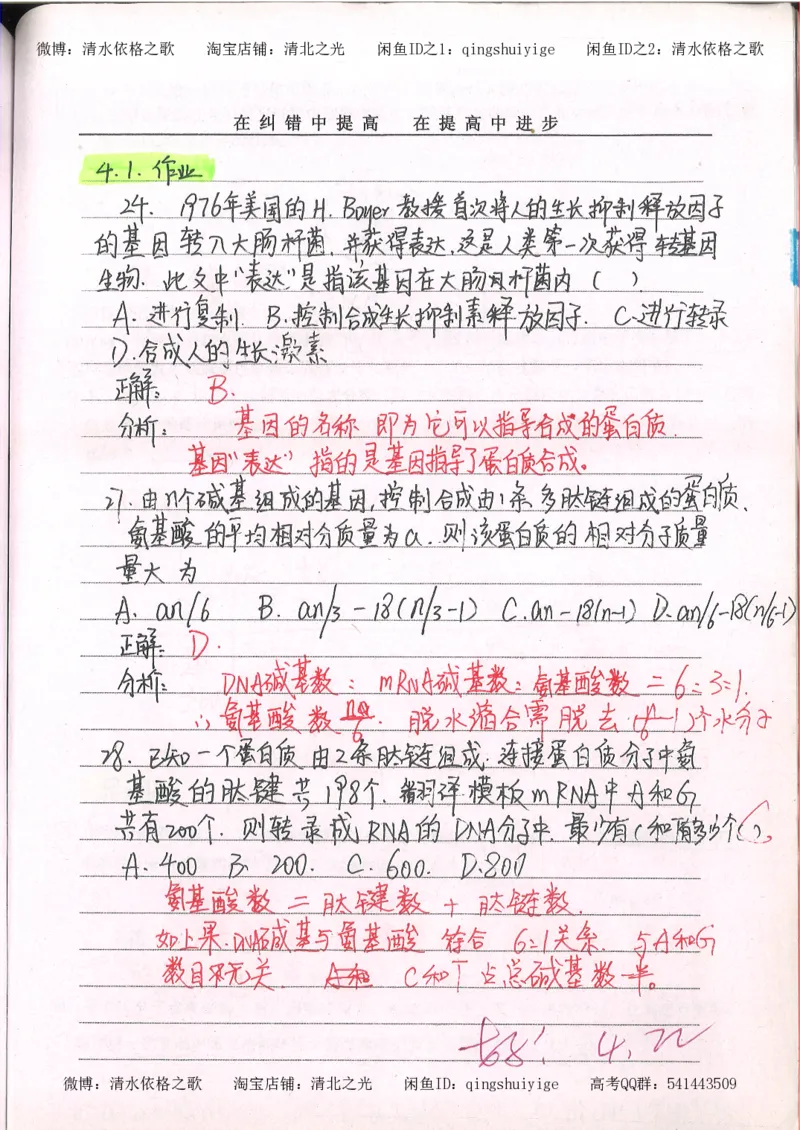 微博：清水依格之歌 淘宝店铺：清北之光 闲鱼ID之1：qingshuiyige 闲鱼ID之2：清水依格之歌
在纠错中提高 在提高中进步
4.1.作业
24. 1976年美国的H. Boyer教授首次将人的生长抑制释放因子
的基因转入大肠杆菌，并获得表达，这是人类第一次获得转基因
生物．此文中"表达"是指该基因在大肠杆菌内（ ）．
A. 进行复制． B. 控制合成生长抑制素释放因子． C.进行转录
D.合成人的生长激素
正解： B.
分析： 基因的名称 即为它可以指导合成的蛋白质．
基因"表达" 指的是基因指导了蛋白质合成。
27. 由n个碱基组成的基因，控制合成由1条多肽链组成的蛋白质．
氨基酸的平均相对分质量为a．则该蛋白质的相对分子质量
量大 为
A. an/6 B. an/3 - 18(n/3-1) C.an - 18(n-1) D.an/6-18(n/6-1)
正解： D.
分析： DNA碱基数：mRNA碱基数：氨基酸数 = 6:3:1.
∴氨基酸数 n/6．脱水缩合需脱去(n/6-1)个水分子
28. 已知一个蛋白质由2条肽链组成．连接蛋白质分子中氨
基酸的肽键共198个．翻译模板mRNA中A和G
共有200个．则转录成RNA的DNA分子中．最少有C和T多少个(C).
A. 400 B. 200. C. 600. D.800
氨基酸数 = 肽键数 + 肽链数．
如上果．DNA碱基与氨基酸 符合 6:1关系．与A和G
数目无关． C和T占总碱基数一半。
4.22
微博：清水依格之歌 淘宝店铺：清北之光 闲鱼ID：qingshuiyige 高考QQ群：541443509